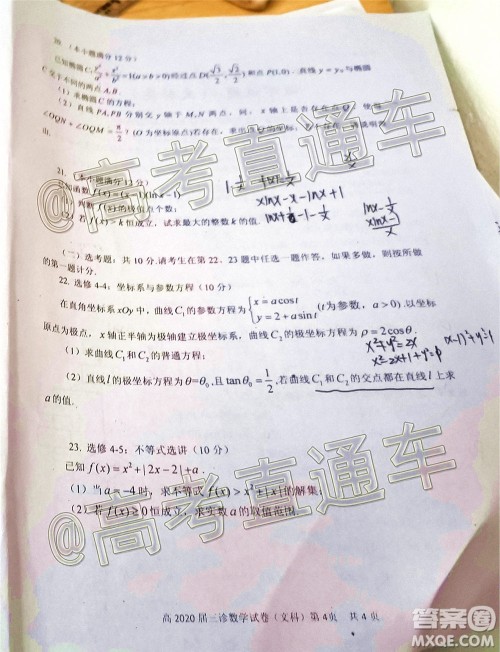 20. (本小题满分12分)
已知椭圆C: y²/a² + x²/b² = 1(a>b>0)经过点D(√3/2, √2/2)和点P(1,0),直线y=y₀与椭圆
C交于不同的两点A,B.
(1)求椭圆C的方程;
(2)直线PA,PB分别交y轴于M,N两点,问,x轴上是否存在点Q,使得
∠OQN+∠OQM=π/2?(O为坐标原点)若存在,求出
由.
21. (本小题满分12分)
已知函数f(x)=(x-1)(ln x-1)
判断f(x)的极值点个数;
若f(x)>k恒成立,试求最大的整数k的值.
xlnx-x-lnx+1
lnx+
-1-1/x
lnx-1/x
xlnx-1
(二)选考题:共10分.请考生在第22、23题中任选一题作答,如果多做,则按所做
的第一题计分.
22. 选修4-4:坐标系与参数方程(10分)
在直角坐标系xOy中,曲线C₁的参数方程为{x=a cos t y=2+a sin t (t为参数,a>0).以坐标
原点为极点,x轴正半轴为极轴建立极坐标系,曲线C₂的极坐标方程为ρ=2cosθ.
(1)求曲线C₁和C₂的普通方程;
x²+y²=2x
(x-1)²+y²=1
x²-2x+1+y²=
(2)直线l的极坐标方程为θ=θ₀,且tanθ₀=1/2,若曲线C₁和C₂的交点都在直线l上求
a的值.
23. 选修4-5:不等式选讲(10分)
已知f(x)=x²+|2x-2|+a.
(1)当a=-4时,求不等式f(x)>x²+|x|的解集;
(2)若f(x)≥0恒成立,求实数a的取值范围.
高2020届三诊数学试卷(文科)第4页 共4页
@高考直通车
@高考直通车
@高考直通车
答案圈
MXQE.COM